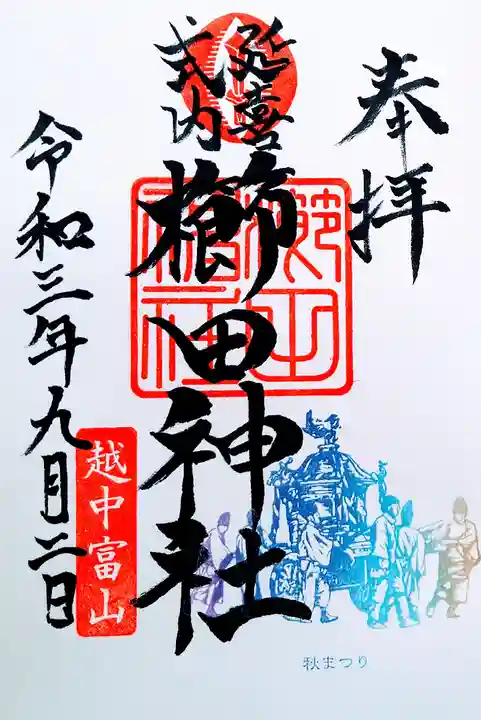 奉拝
延喜
式内
櫛田神社
令和三年九月二日
越中富山
秋まつり